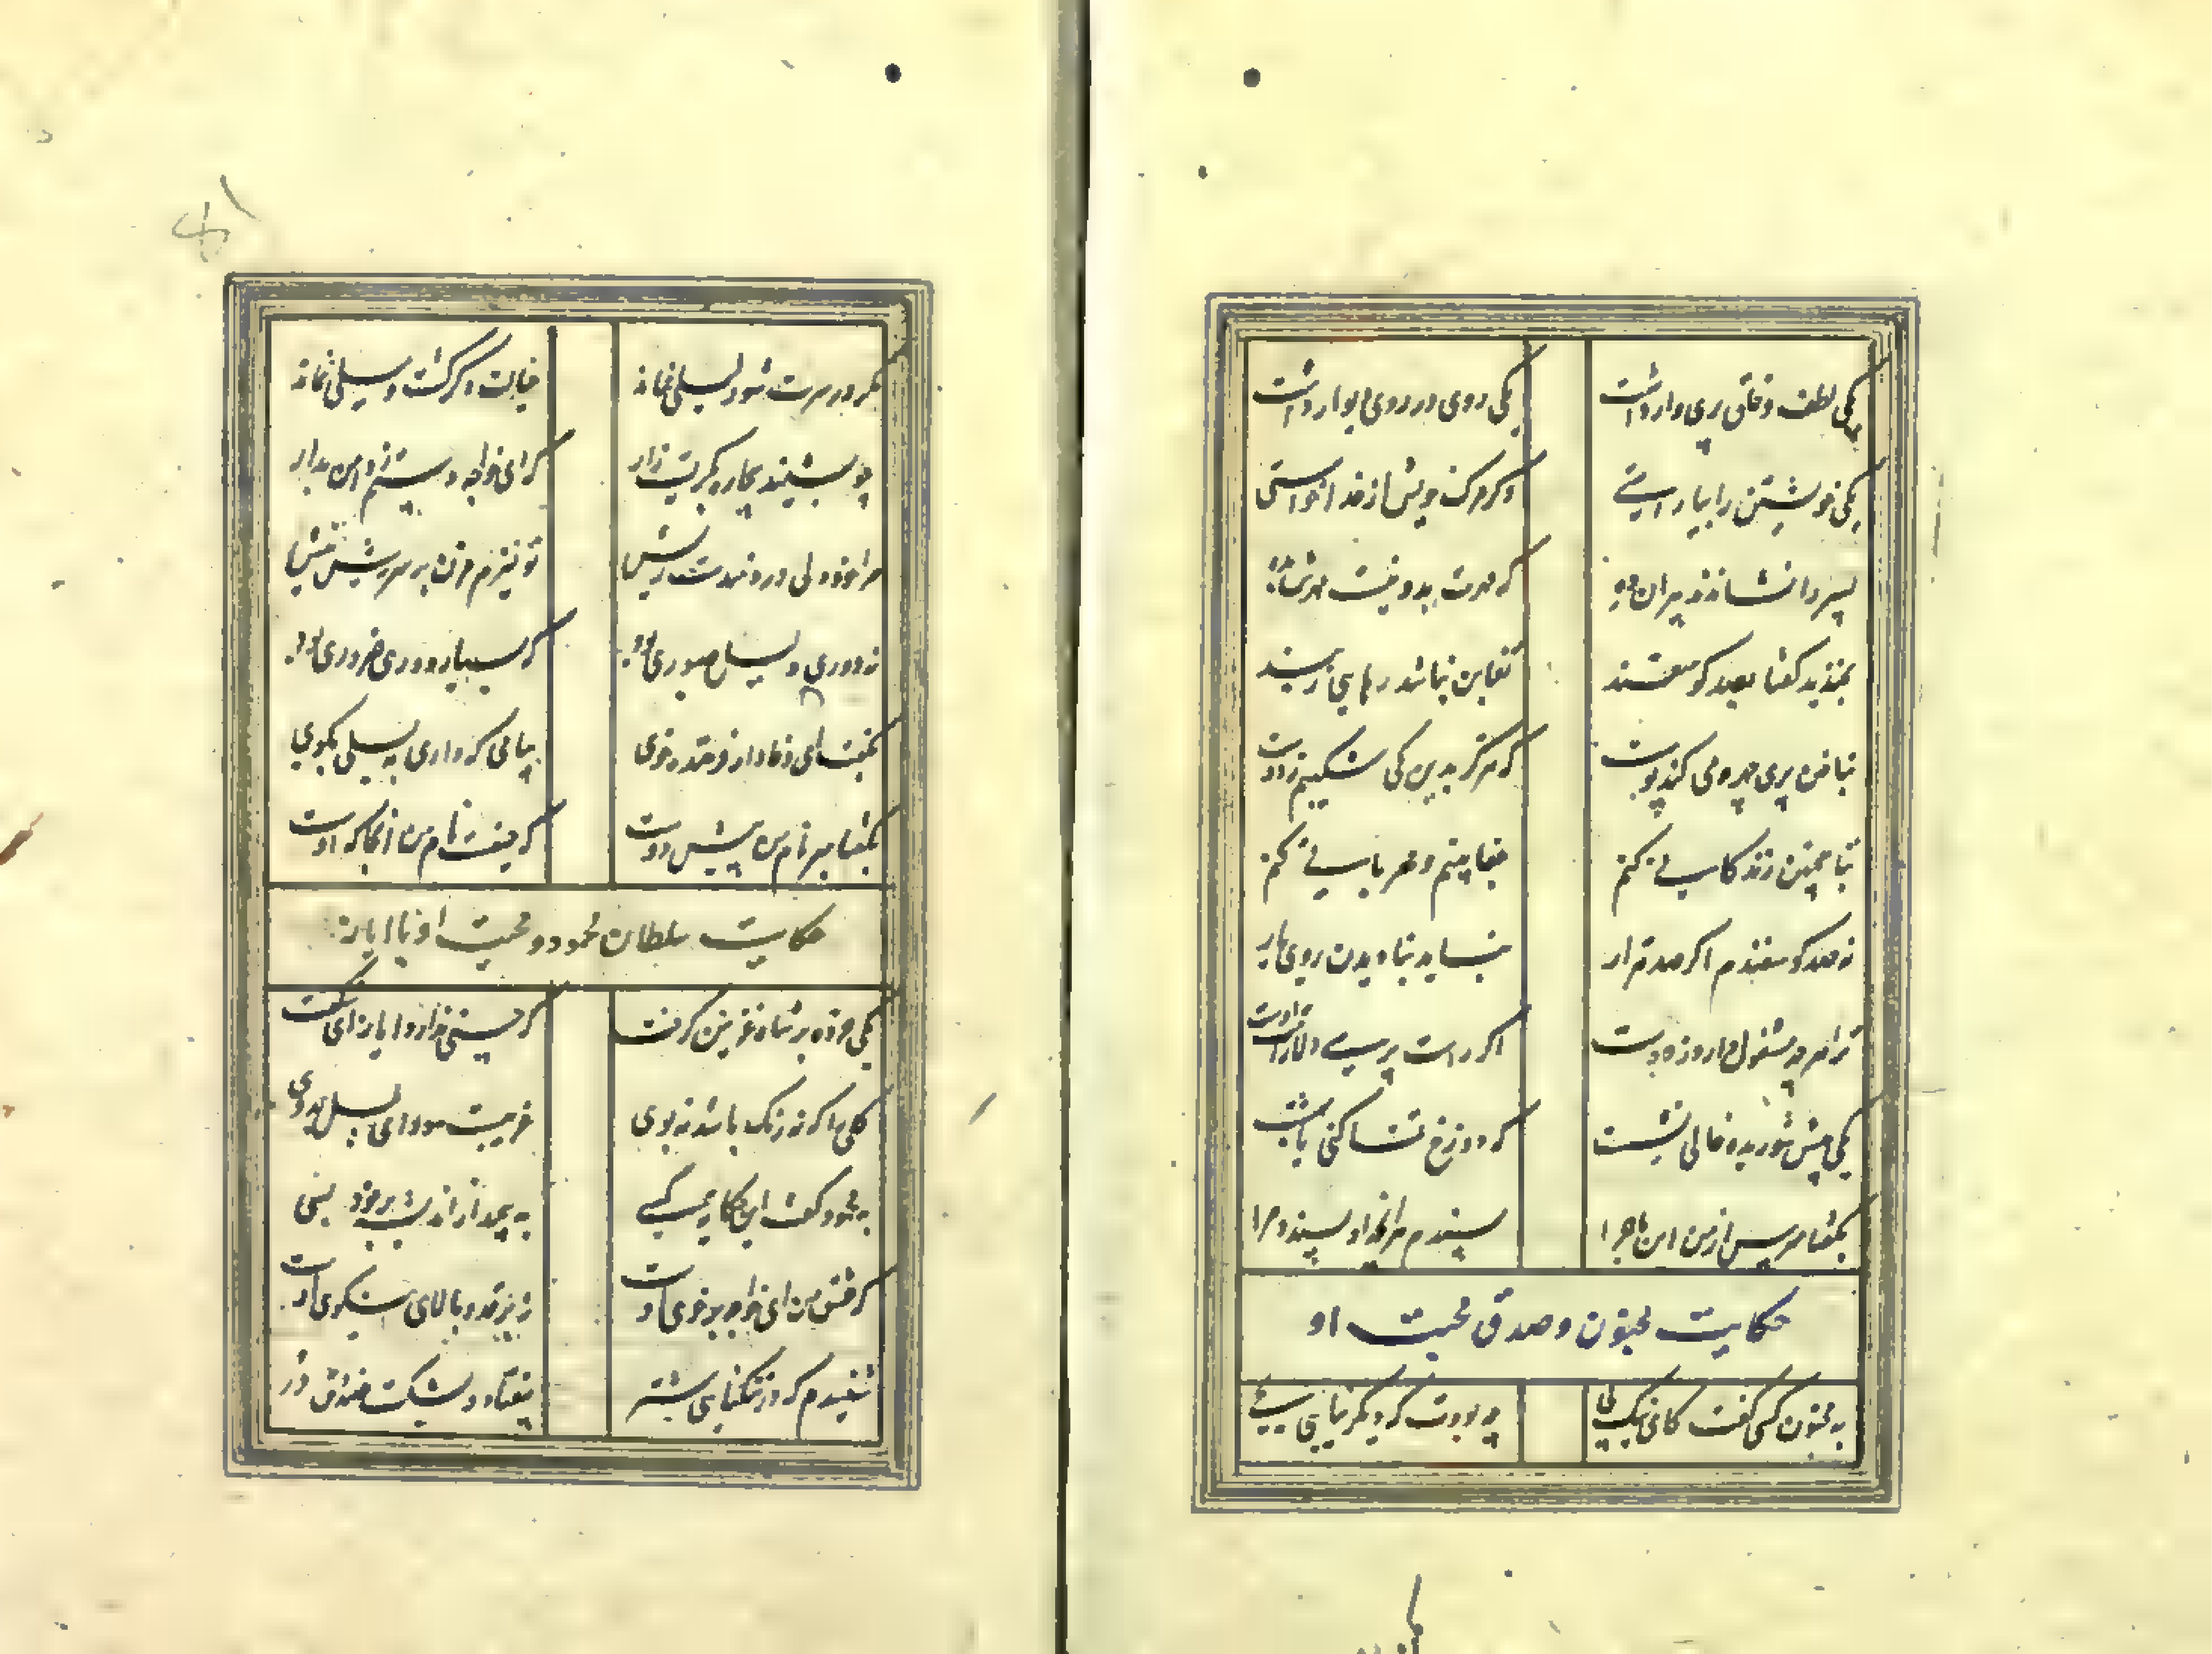 یکی لطف و خلقی پری وار داشت یکی روی در روی دیوار داشت
یکی خویشتن را بیاراستی دگر مرگ خویش از خدا خواستی
پسر را نشاندند پیران ده که مهرت برو نیست مهرش بده
بخندید گفتا بصد گوسفند تغابن نباشد رهایی ز بند
بناخن پری چهره می کند پوست که هرگز بدین کی شکیبم ز دوست
نه صد گوسفندم اگر صد هزار نباید بنا دیدن روی یار
ترا هر چه مشغول دارد ز دوست اگر راست پرسی دلارامت اوست
یکی پیش شوریده حالی نبشت که دوزخ تمنا کنی یا بهشت
بگفتا مپرس از من این ماجرا پسندیدم هر آنچ او پسندد مرا
حکایت مجنون و صدق محبت او
به مجنون کسی گفت کای نیک پی چه بودت که دیگر نیایی به حی
مگر در سرت شور لیلی نماند خیالت دگر گشت و میلی نماند
چو بشنید بیچاره بگریست زار که ای خواجه دستم ز دامن بدار
مرا خود دلی دردمندست ریش تو نیزم مزن بر سر ریش نیش
نه دوری دلیل صبوری بود که بسیار دوری ضروری بود
بگفت ای وفادار فرخنده خوی پیامی که داری به لیلی بگوی
بگفتا مبر نام من پیش دوست که حیفست نام من آنجا که اوست
حکایت سلطان محمود و محبت او با ایاز
یکی خرده بر شاه غزنین گرفت که حسنی ندارد ایاز ای شگفت
گلی را که نه رنگ باشد نه بوی غریبست سودای بلبل بروی
به محمود گفت این حکایت کسی به پیچید از اندیشه بر خود بسی
که عشق من ای خواجه بر خوی اوست نه بر قد و بالای نیکوی اوست
شنیدم که در تنگنایی شتر بیفتاد و بشکست صندوق در